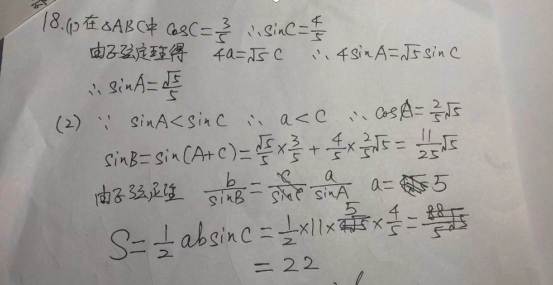 18.(1)在△ABC中 cosC=3/5 ∴sinC=4/5
由正弦定理得 4a=√5c ∴4sinA=√5sinC
∴sinA=√5/5
(2) ∵ sinA<sinC ∴ a<c ∴cosA=2/5√5
sinB=sin(A+C)=√5/5×3/5+4/5×2/5√5=11/25√5
由正弦定理 b/sinB=a/sinA a=5
S=1/2absinC=1/2×11×5×4/5
=22